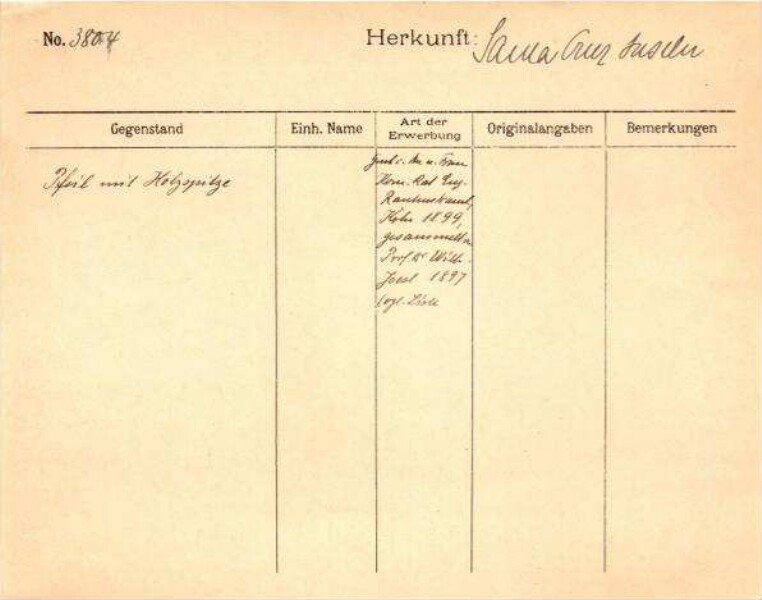 No. 3804 Herkunft: Santa Cruz Inseln
Gegenstand Einh. Name Art der Erwerbung Originalangaben Bemerkungen
Pfeil mit Holzspitze
Kom. Rat Eug.
Rautenstrauch,
Köln 1899,
gesammelt v.
Prof. Dr Wilh.
Joest 1897
vgl. Liste